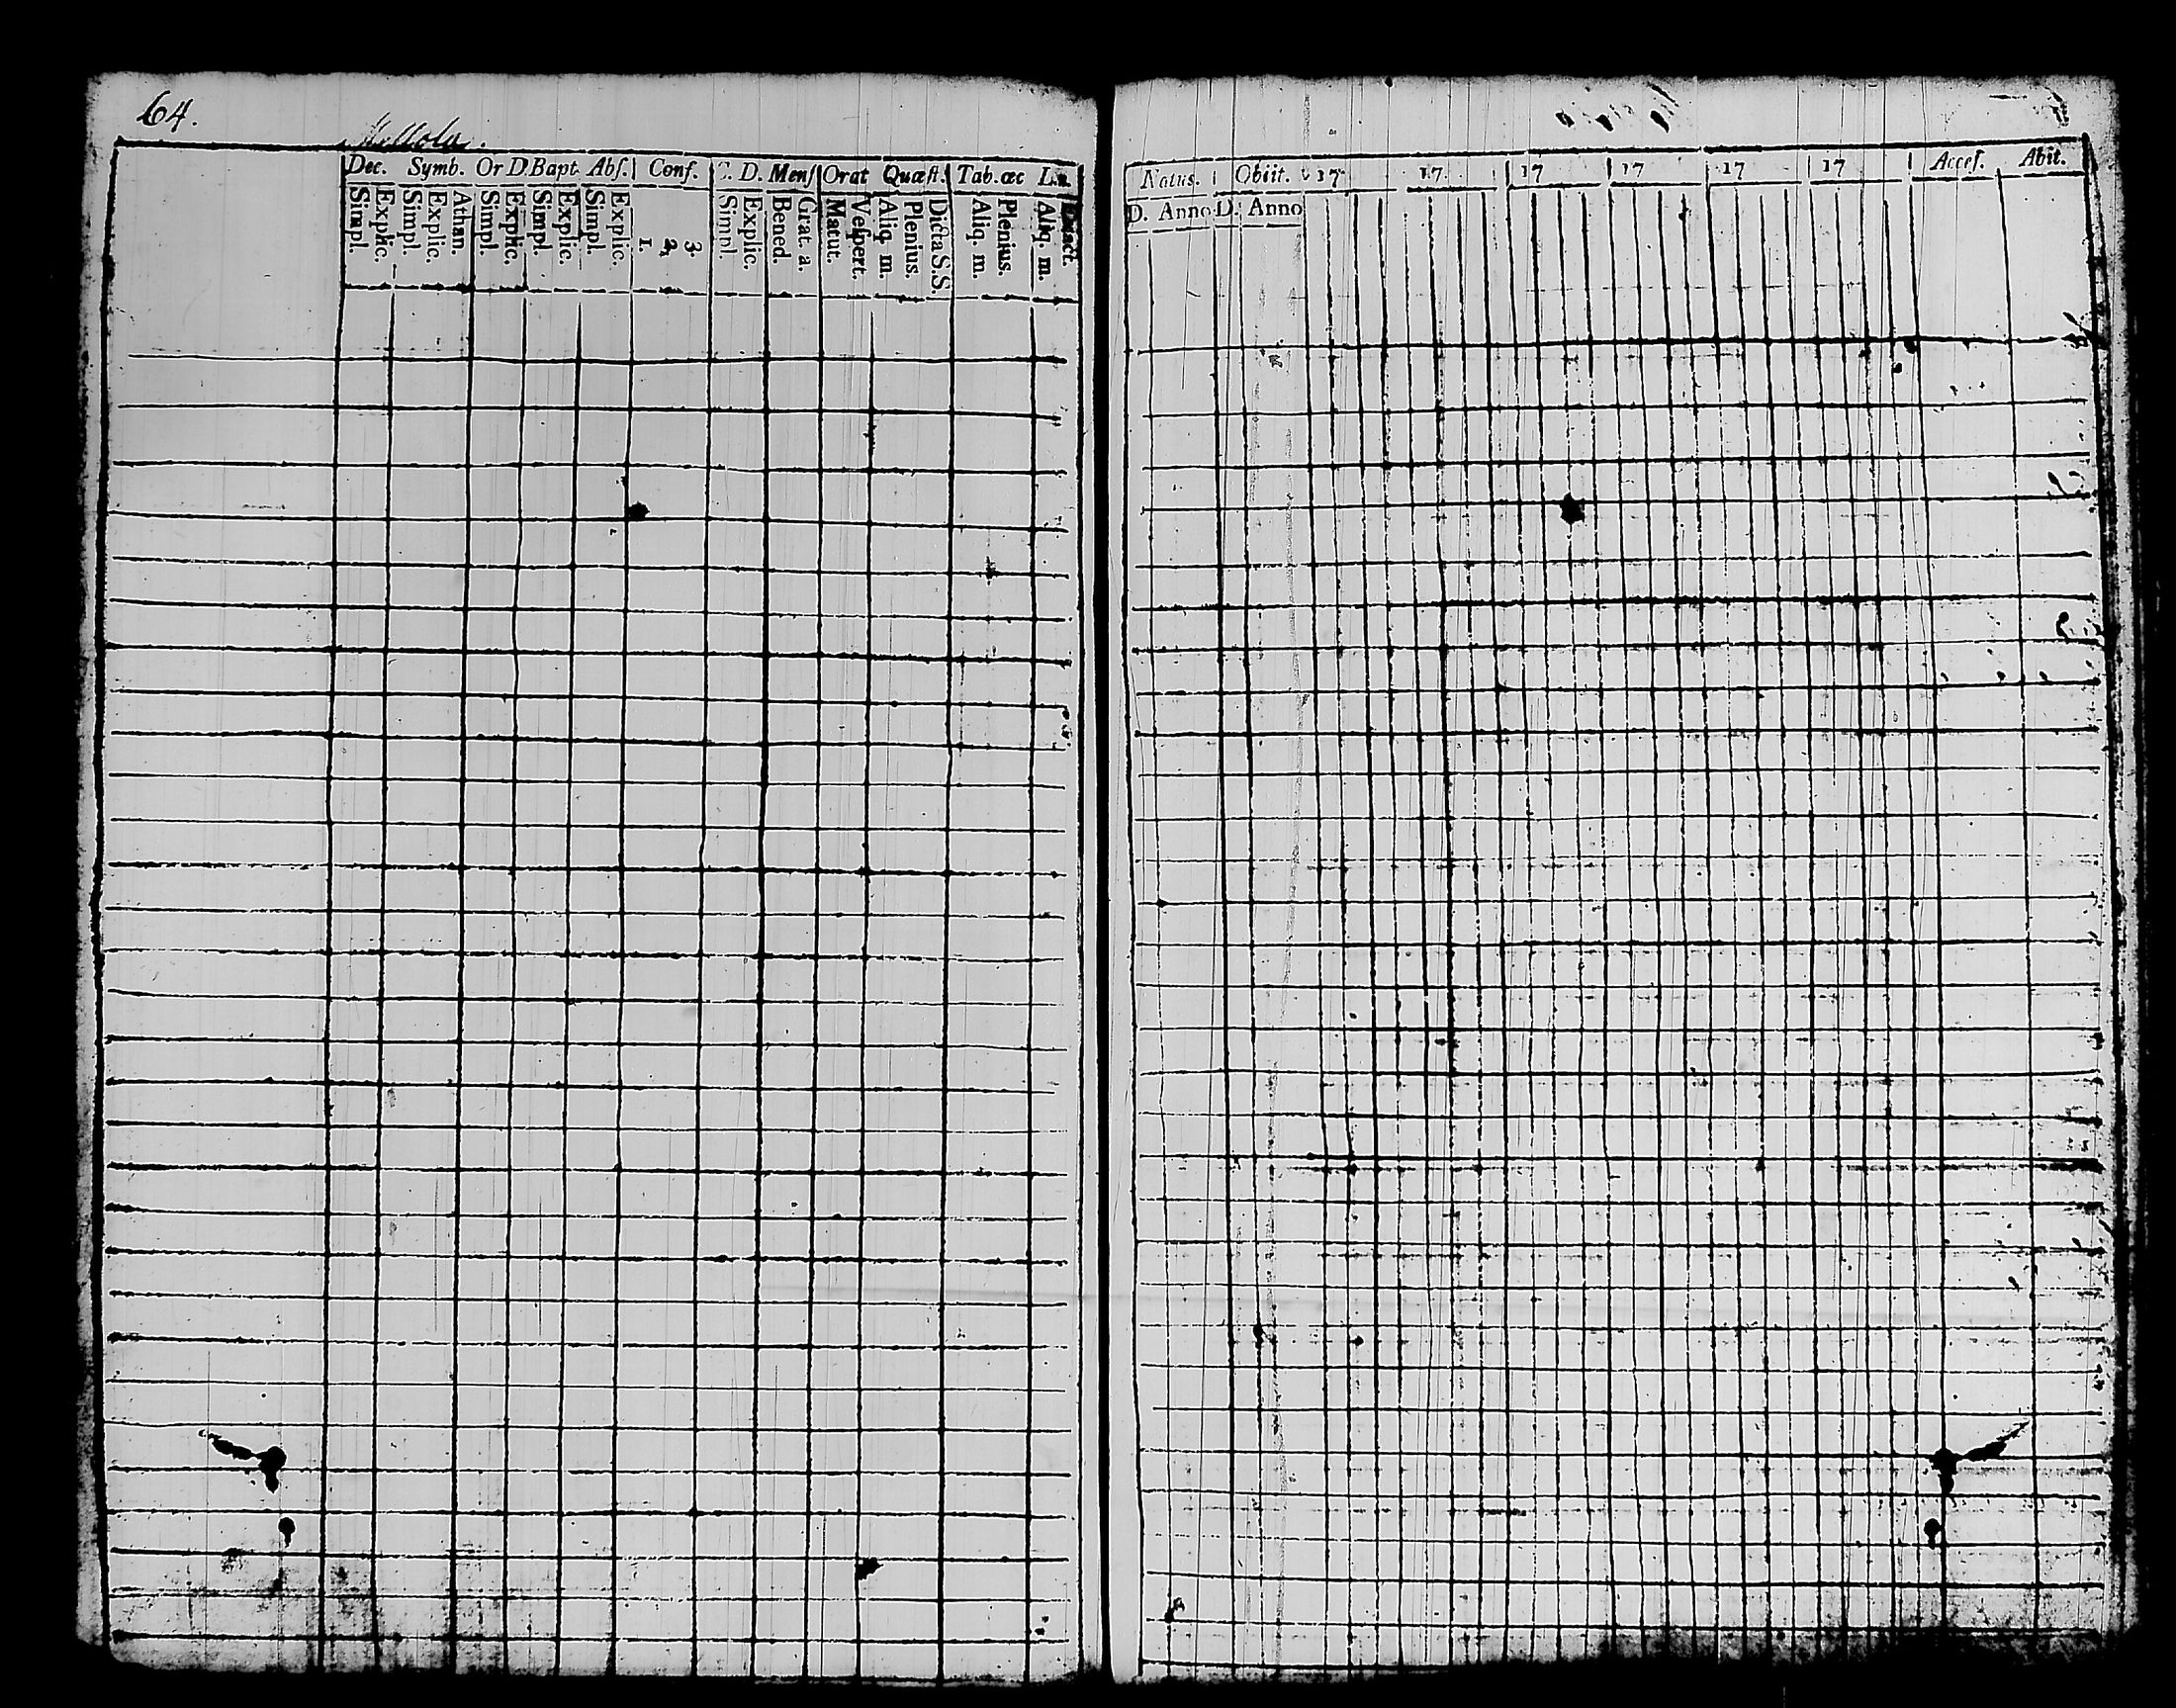 64.
Dec. Symb. Or D Bapt. Abſ. Conf. C. D. Menſ Orat Quæſt. Tab. œc L.n.
Simpl. Explic. Simpl. Explic. Athan. Simpl. Explic. Simpl. Explic. Simpl. Explic. 1. 2. 3. Simpl. Explic. Bened. Grat. a. Matut. Veſpert. Aliq. m. Plenius. Dicta S.S. Aliq. m. Plenius. Aliq. m. Exact.
Natus. Obiit. 17 17 17 17 17 17 Acceſ. Abit.
D. Anno D. Anno